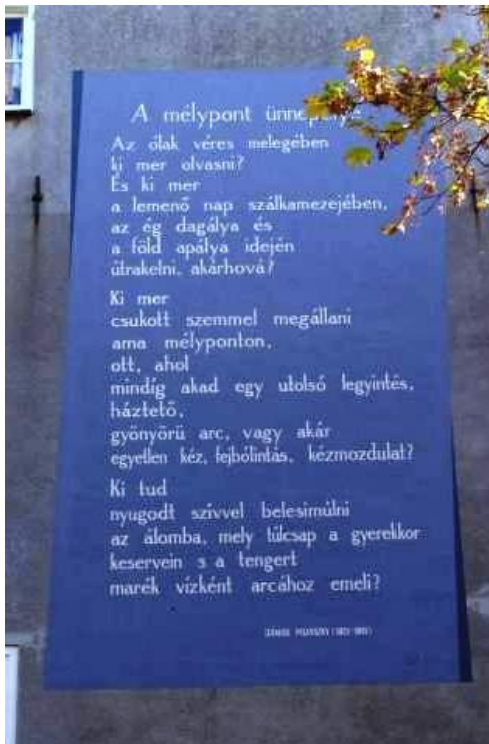 A mélypont ünnepélye
Az ólak véres melegében
ki mer olvasni?
És ki mer
a lemenő nap szálkamezejében,
az ég dagálya és
a föld apálya idején
útrakelni, akárhová?
Ki mer
csukott szemmel megállani
ama mélyponton,
ott, ahol
mindíg akad egy utolsó legyintés,
háztető,
gyönyörü arc, vagy akár
egyetlen kéz, fejbólintás, kézmozdulat?
Ki tud
nyugodt szívvel belesimúlni
az álomba, mely túlcsap a gyerekkor
keservein s a tengert
marék vízként arcához emeli?
JÁNOS PILINSZKY